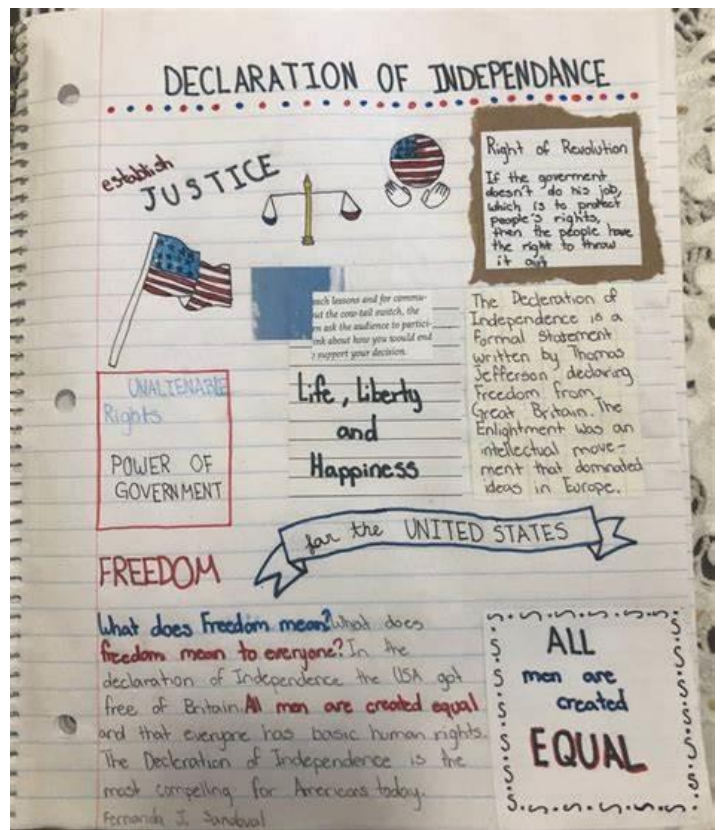 DECLARATION OF INDEPENDANCE
establish
JUSTICE
Right of Revolution
If the goverment
doesn't do his job,
which is to protect
people's rights,
then the people have
the right to throw
it out
ach lessons and for commu-
ut the cow-tail switch, the
n ask the audience to partici-
nk about how you would end
support your decision.
The Decleration of
Independence is a
formal statement
written by Thomas
Jefferson declaring
freedom from
Great Britain. The
Enlightment was an
intellectual move-
ment that dominated
ideas in Europe.
UNALIENABLE
Rights
POWER OF
GOVERNMENT
Life, Liberty
and
Happiness
for the UNITED STATES
FREEDOM
What does Freedom mean? What does
freedom mean to everyone? In the
declaration of Independence the USA got
free of Britain. All men are created equal
and that everyone has basic human rights.
The Decleration of Independence is the
most compelling for Americans today.
Fernanda J. Sandoval
ALL
men are
created
EQUAL